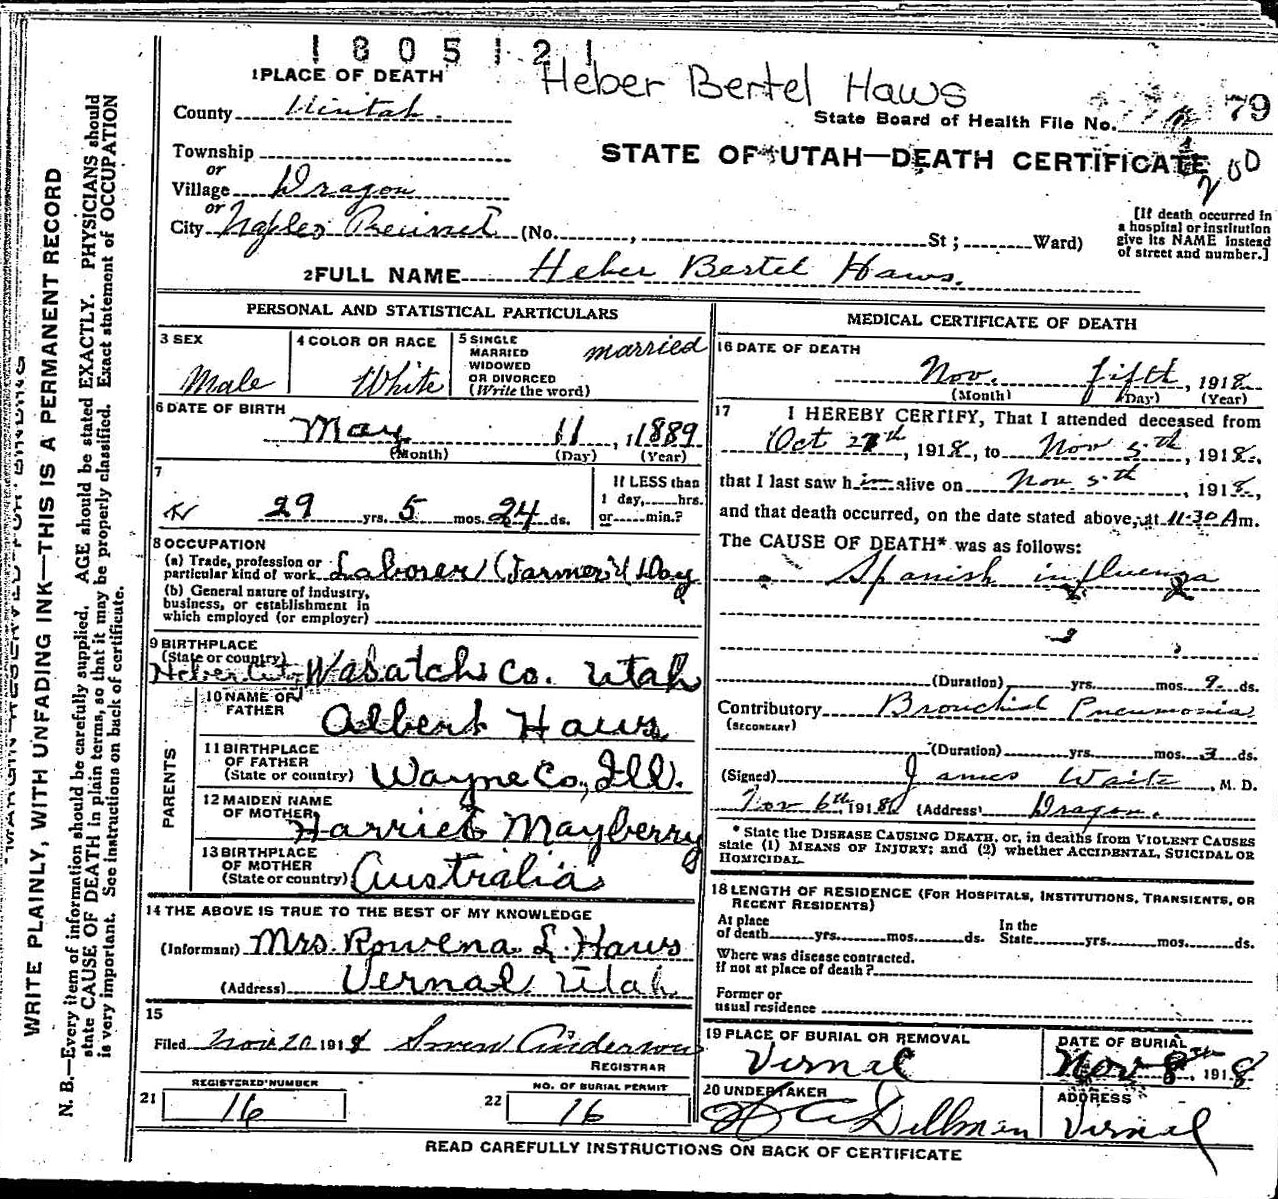 1805121
Heber Bertel Haws
1 PLACE OF DEATH
County Uintah.
State Board of Health File No. 79
Township
STATE OF UTAH—DEATH CERTIFICATE
200
or
Village Dragon
or
City Naples Precinct (No. , St ; Ward)
[If death occurred in
a hospital or institution
give its NAME instead
of street and number.]
2 FULL NAME Heber Bertel Haws.
PERSONAL AND STATISTICAL PARTICULARS
3 SEX
Male
4 COLOR OR RACE
White
5 SINGLE
MARRIED
WIDOWED
OR DIVORCED
(Write the word)
married
6 DATE OF BIRTH
May 11, 1889
(Month) (Day) (Year)
7
29 yrs. 5 mos. 24 ds.
If LESS than
1 day, hrs.
or min.?
8 OCCUPATION
(a) Trade, profession or
particular kind of work Laborer (Farmer) Day
(b) General nature of industry,
business, or establishment in
which employed (or employer)
9 BIRTHPLACE
(State or country)
Heber City Wasatch Co. Utah
PARENTS
10 NAME OF
FATHER
Albert Haws
11 BIRTHPLACE
OF FATHER
(State or country) Wayne Co, Ill.
12 MAIDEN NAME
OF MOTHER Harriet Mayberry
13 BIRTHPLACE
OF MOTHER
(State or country) Australia
14 THE ABOVE IS TRUE TO THE BEST OF MY KNOWLEDGE
(Informant) Mrs. Rowena L. Haws
(Address) Vernal Utah
15
Filed Nov 20 1918
REGISTRAR
REGISTERED NUMBER
21 16
NO. OF BURIAL PERMIT
22 16
MEDICAL CERTIFICATE OF DEATH
16 DATE OF DEATH
Nov. fifth, 1918
(Month) (Day) (Year)
17 I HEREBY CERTIFY, That I attended deceased from
Oct 27th, 1918, to Nov 5th, 1918,
that I last saw him alive on Nov 5th, 1918,
and that death occurred, on the date stated above, at 11-30 A m.
The CAUSE OF DEATH* was as follows:
Spanish influenza
(Duration) yrs. mos. 9 ds.
Contributory Bronchial Pneumonia
(SECONDARY)
(Duration) yrs. mos. 3 ds.
(Signed) James Waite, M. D.
Nov 6th, 1918 (Address) Dragon.
* State the DISEASE CAUSING DEATH, or, in deaths from VIOLENT CAUSES
state (1) MEANS OF INJURY; and (2) whether ACCIDENTAL, SUICIDAL OR
HOMICIDAL.
18 LENGTH OF RESIDENCE (FOR HOSPITALS, INSTITUTIONS, TRANSIENTS, OR
RECENT RESIDENTS)
At place
of death yrs. mos. ds.
In the
State yrs. mos. ds.
Where was disease contracted.
If not at place of death?
Former or
usual residence
19 PLACE OF BURIAL OR REMOVAL
Vernal
DATE OF BURIAL
Nov 8th, 1918
20 UNDERTAKER
Dillman
ADDRESS
Vernal
READ CAREFULLY INSTRUCTIONS ON BACK OF CERTIFICATE
MARGIN RESERVED FOR BINDING
WRITE PLAINLY, WITH UNFADING INK—THIS IS A PERMANENT RECORD
N. B.—Every item of information should be carefully supplied. AGE should be stated EXACTLY. PHYSICIANS should
state CAUSE OF DEATH in plain terms, so that it may be properly classified. Exact statement of OCCUPATION
is very important. See instructions on back of certificate.